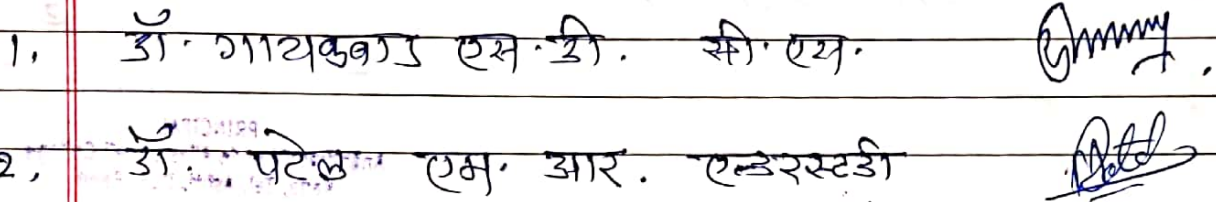 1. डॉ. गायकवाड एस.डी. सी.एस.
2. डॉ. पटेल एम. आर. एन्डरस्टडी